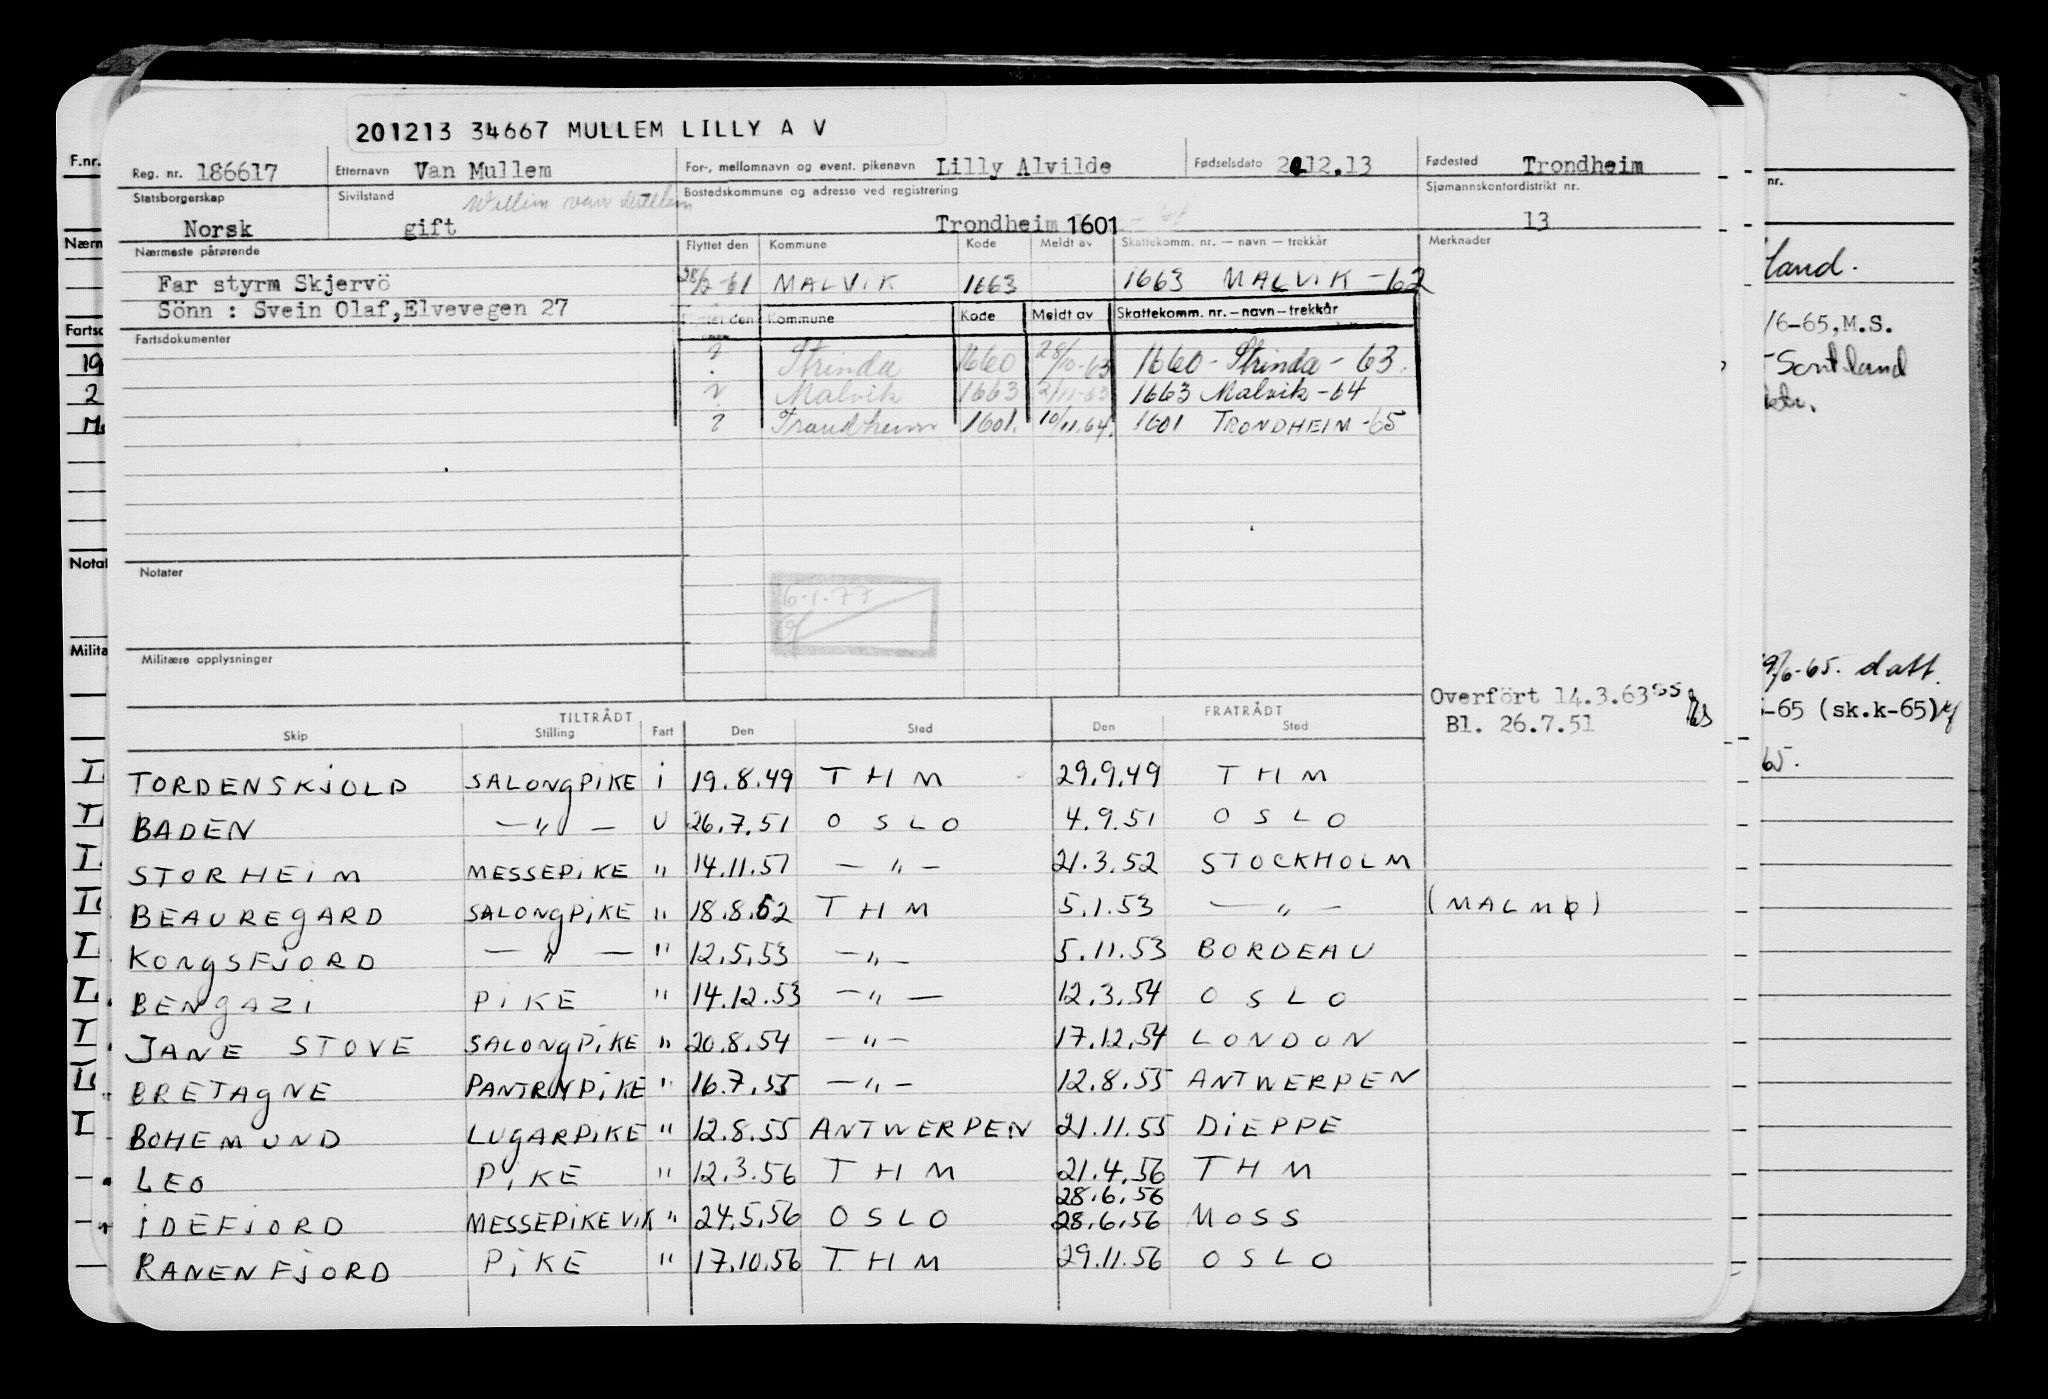 201213 34667 MULLEM LILLY A V
Reg. nr. 186617 Etternavn Van Mullem For-, mellomnavn og event. pikenavn Lilly Alvilde Fødselsdato 20.12.13 Fødested Trondheim
Statsborgerskap Norsk Sivilstand gift Bostedskommune og adresse ved registrering Trondheim 1601 Sjømannskontordistrikt nr. 13
Nærmeste pårørende Flyttet den Kommune Kode Meldt av Skattekomm. nr. — navn — trekkår Merknader
Far styrm Skjervö 28/2-61 MALVIK 1663 1663 MALVIK -62
Sönn : Svein Olaf,Elvevegen 27
Kommune Kode Meldt av Skattekomm. nr. — navn — trekkår
Fartsdokumenter
? Strinda 1660 28/10-63 1660 - Strinda - 63.
? Malvik 1663 2/11-63 1663 Malvik - 64
? Trondheim 1601. 10/11.64. 1601 TRONDHEIM -65
Notater
6.1.77
Militære opplysninger
Overfört 14.3.63 ss
Bl. 26.7.51
TILTRÅDT FRATRÅDT
Skip Stilling Fart Den Sted Den Sted
TORDENSKJOLD SALONGPIKE i 19.8.49 THM 29.9.49 THM
BADEN — " — U 26.7.51 OSLO 4.9.51 OSLO
STORHEIM MESSEPIKE " 14.11.51 — " — 21.3.52 STOCKHOLM
BEAUREGARD SALONGPIKE " 18.8.52 THM 5.1.53 — " — (MALMØ)
KONGSFJORD — " — " 12.5.53 — " — 5.11.53 BORDEAU
BENGAZI PIKE " 14.12.53 — " — 12.3.54 OSLO
JANE STOVE SALONGPIKE " 20.8.54 — " — 17.12.54 LONDON
BRETAGNE PANTRYPIKE " 16.7.55 — " — 12.8.55 ANTWERPEN
BOHEMUND LUGARPIKE " 12.8.55 ANTWERPEN 21.11.55 DIEPPE
LEO PIKE " 12.3.56 THM 21.4.56 THM
28.6.56
IDEFJORD MESSEPIKE VIK " 24.5.56 OSLO 28.6.56 MOSS
RANENFJORD PIKE " 17.10.56 THM 29.11.56 OSLO
F.nr.
Nærm
Fartsd
19
2
M
Notat
Milita
nr.
/6-65,M.S.
-65 (sk.k-65)
65.